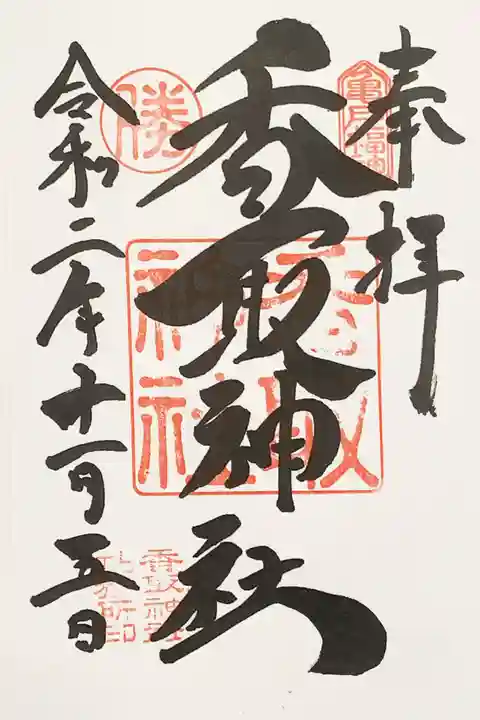 奉拝
亀戸福神
香取神社
香取神社
勝
令和二年十一月五日
香取神社
社務所印